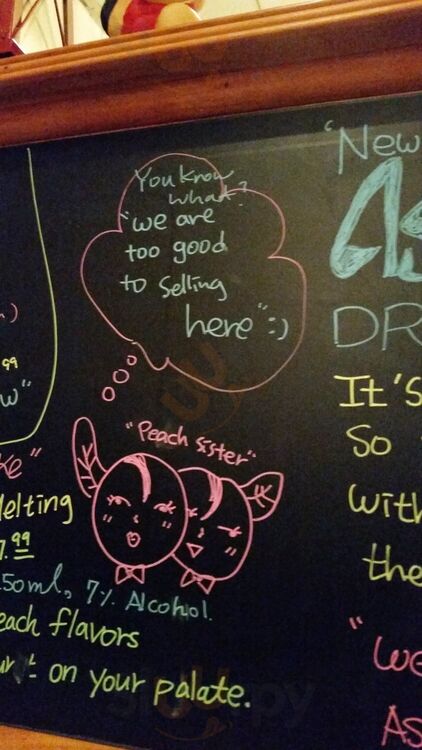 You know
what?
"we are
too good
to selling
here" :)
"Peach sister"
"New
DR
It's
So
with
the
"we
As
99
w"
ke"
Melting
7.99
250ml, 7% Alcohol.
each flavors
on your palate.